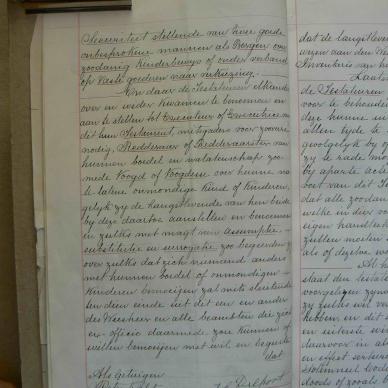 Securiteit stellende van twee goede
onbesprokene mannen als Borgen over
zoodanig Kinderbewys of onder verband
op vaste goederen naar verkiezing.
En daar de Testateuren elkander
over en weder kwamen te benoemen en
aan te stellen tot Executeur of Executrice van
dit hun Testament, mitsgaders voor zoo verre
nodig, Redderaar of Redderaarster van
hunnen boedel en nalatenschap zoo-
mede Voogd of Voogdesse over hunne na
te laten onmondige Kind of Kinderen,
gelyk zy de langstlevende van hen beide
by deze daartoe aanstellen en benoemen
en zulks met magt van assumptie,
substitutie en surrogatie zoo begeerden zy
over zulks dat zich niemand anders
met hunnen boedel of onmondigen
Kinderen bemoeijen zal met uitsluiting
ten dien einde uit dit een en ander
des Weesheer en alle beambten die zich
ex officio daarmede zou kunnen of
willen bemoeijen met wil en begeerte
dat
Als Getuigen
dat de langstleven
wyzen aan den Wee
Inventaris van hun
Laats
de Testateuren
voor te behouden
deze hunne
allen tyde te
gevoegelyk by of
zy te rade mo
by aparte acte
voet van dit Te
dat alle zoodan
welke in dier
eigen handteek
zullen moeten
als of dezelve wo
Al h
staat den testat
voorgelezen zynd
zy zulks wel
hebben, en dit
en uiterste wi
daarvoor in al
en effect sorteer
solemneel testam
doods of zooals